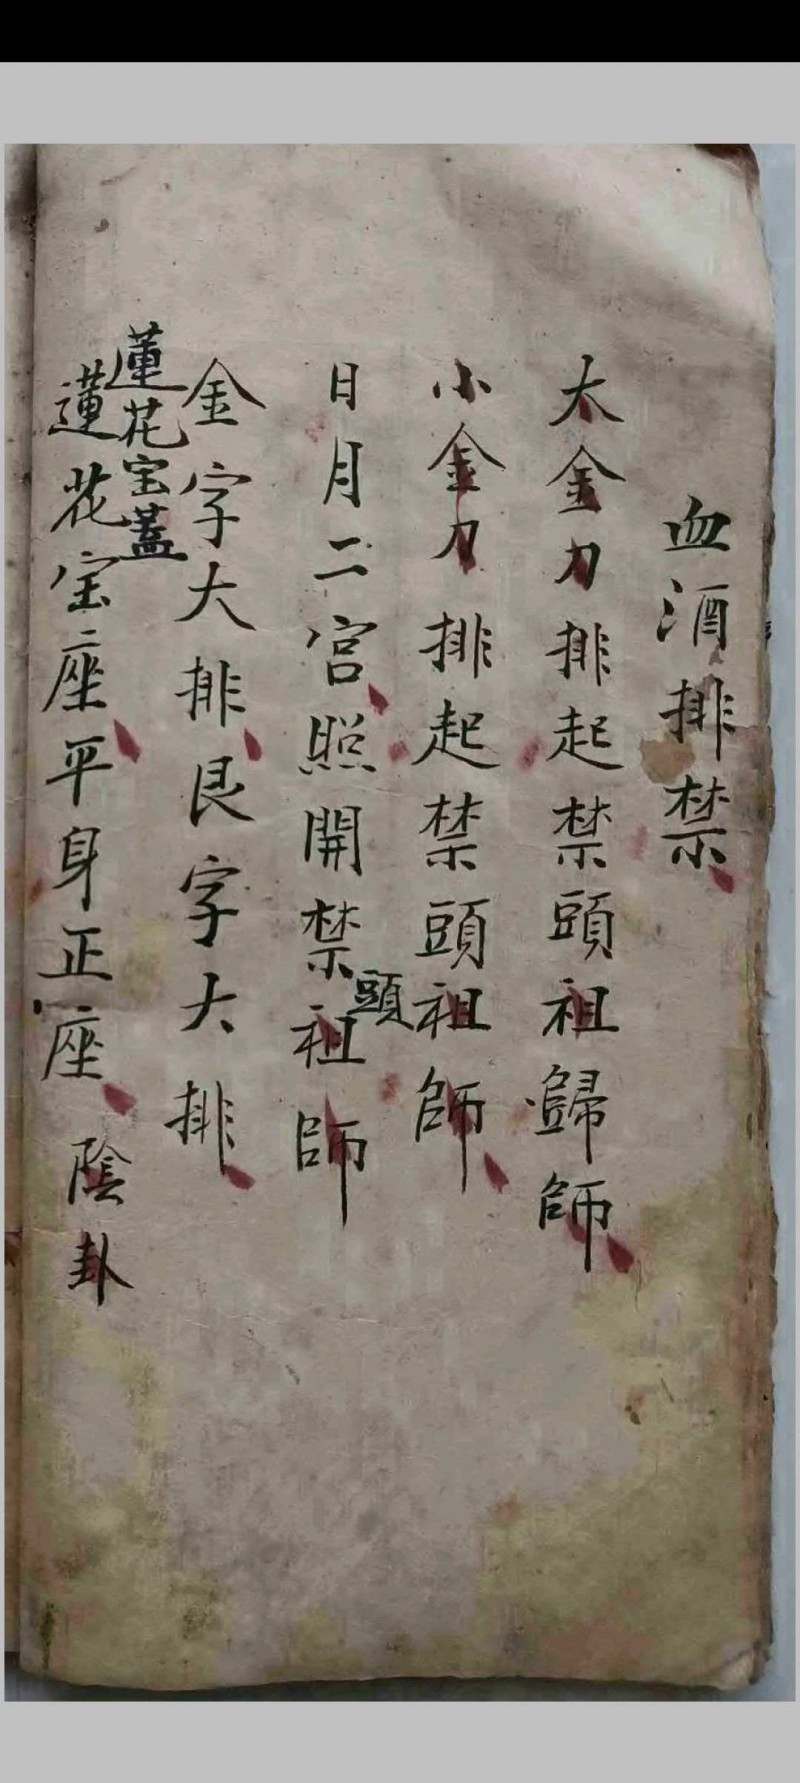 血酒排禁
大金刀排起禁頭祖歸師
小金刀排起禁頭祖師
日月二宫照開禁頭祖師
金字大排艮字大排
蓮花宝蓋
蓮花宝座平身正座 陰卦